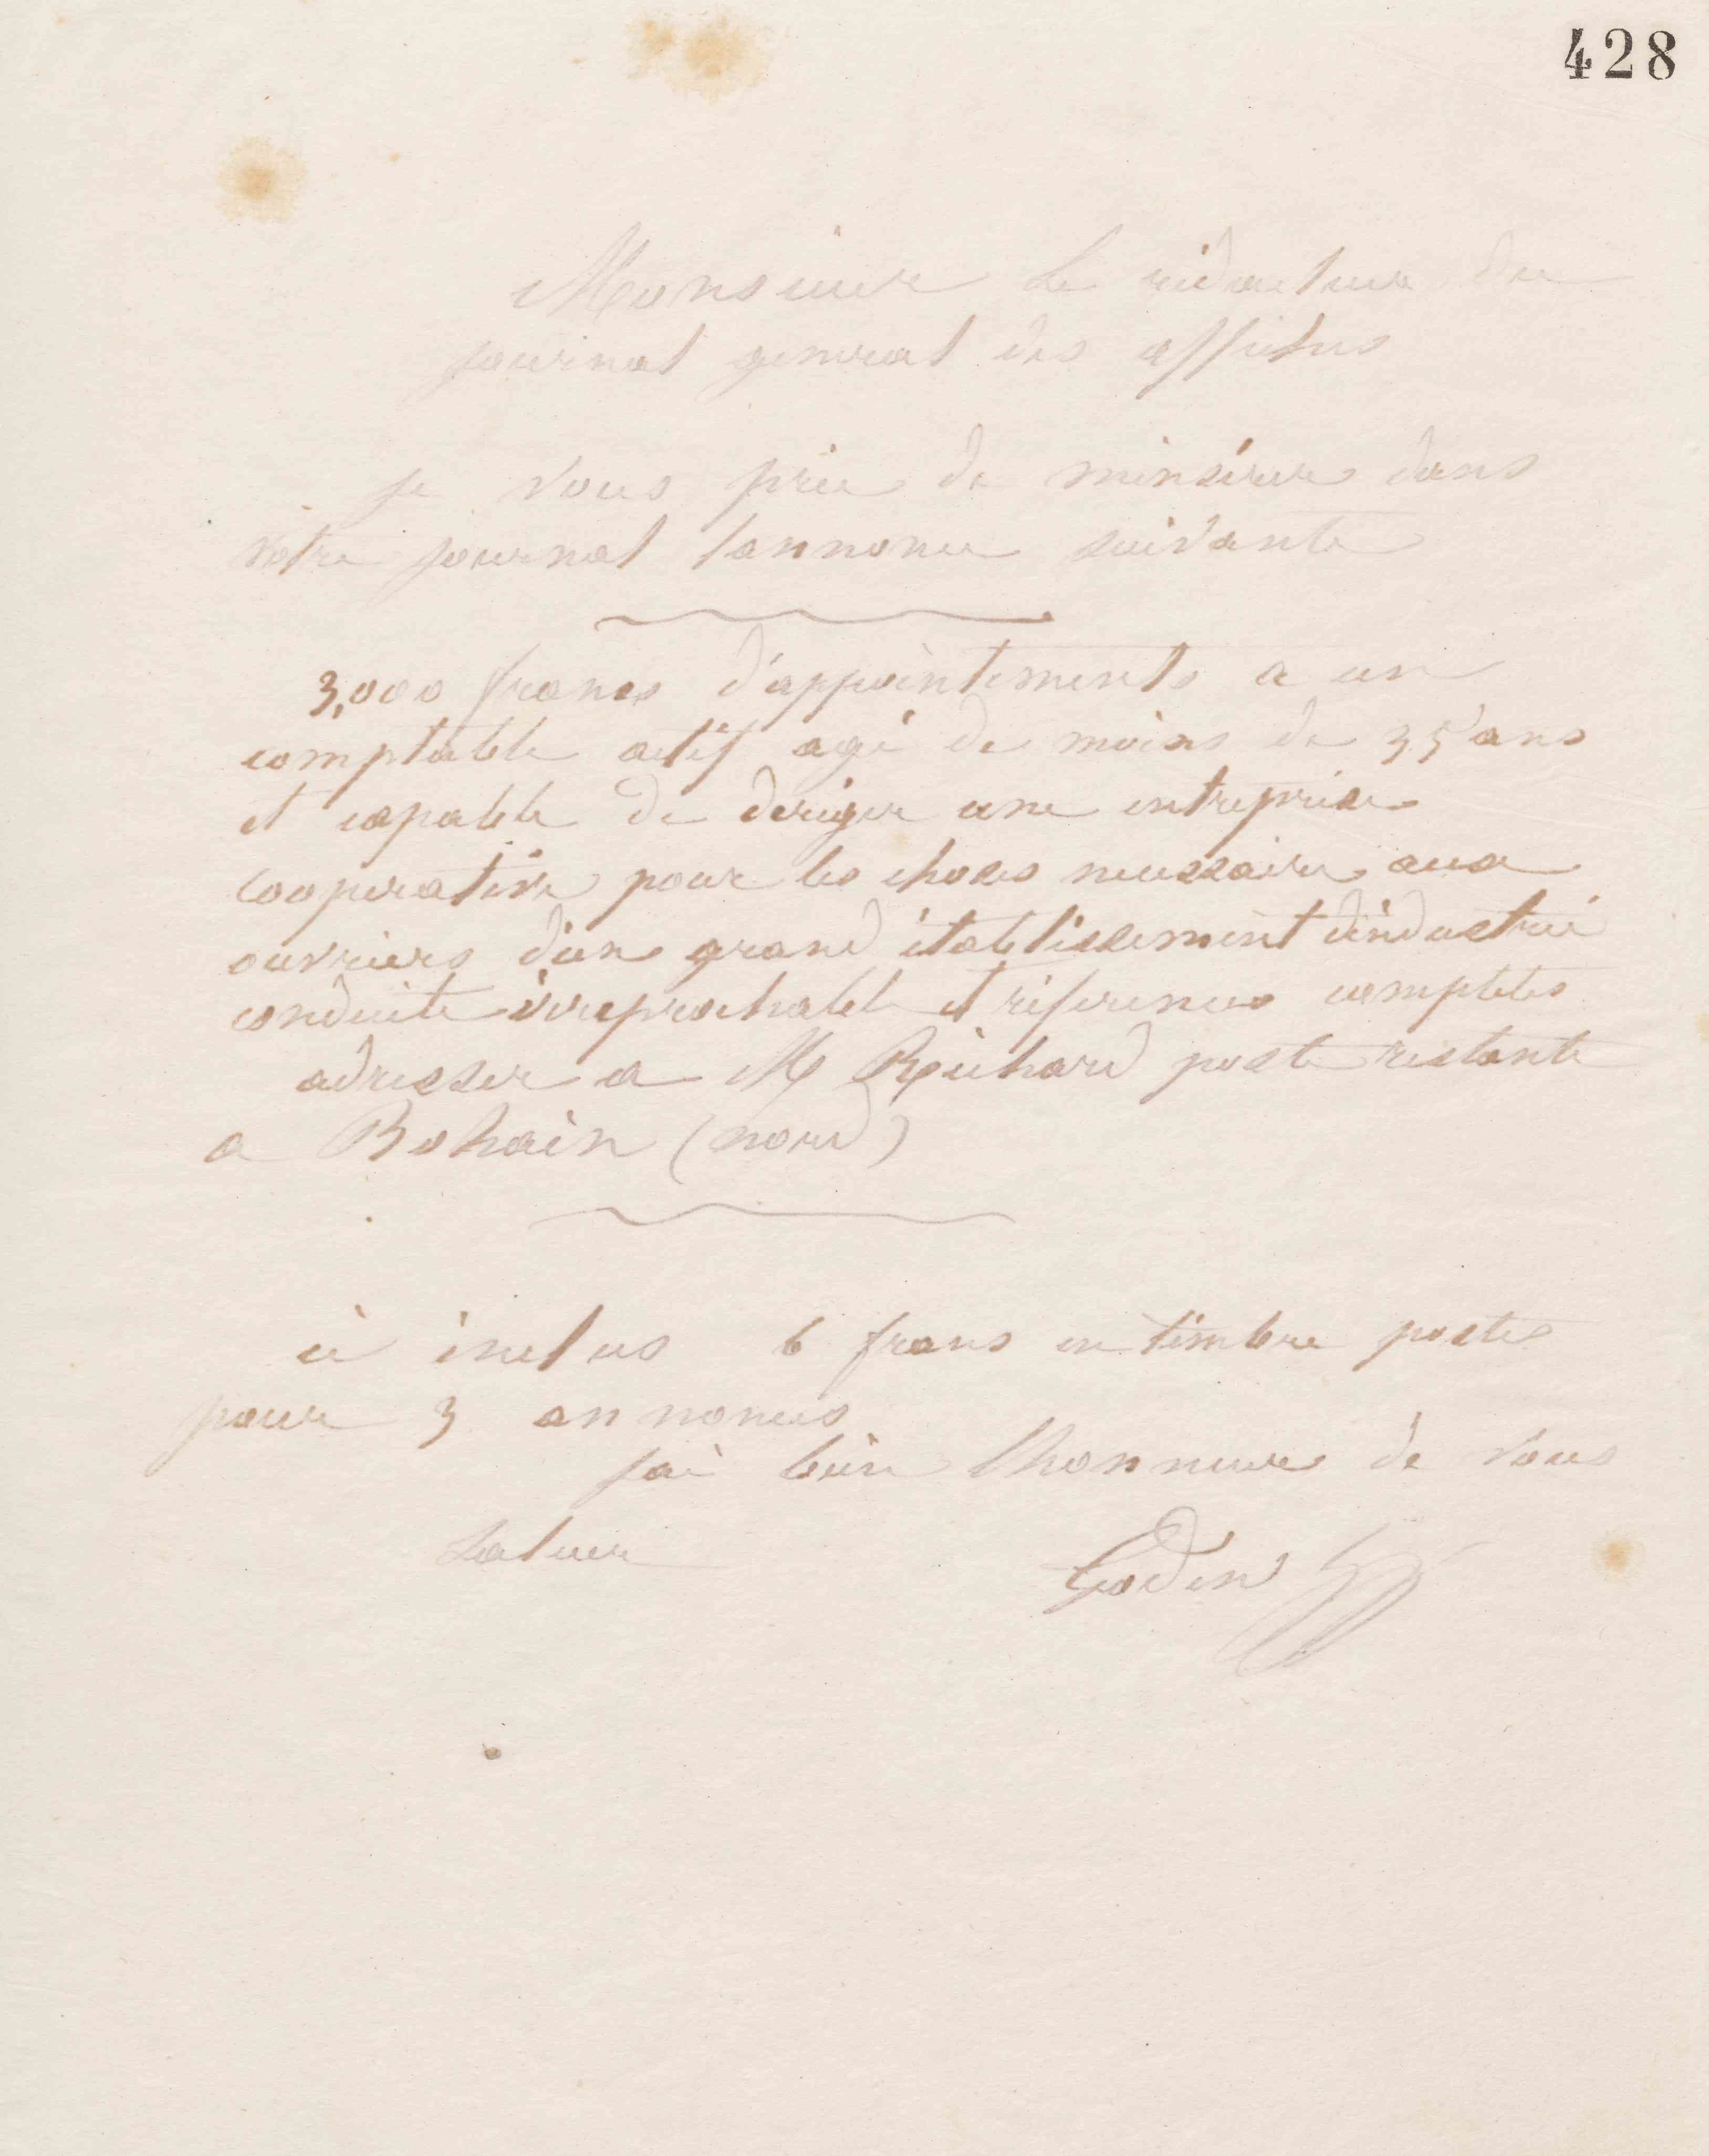 428
Monsieur le rédacteur du
journal general des affiches
je vous prie de minsérer dans
votre journal lannonce suivante
3,000 francs d'appointements a un
comptable actif agé de moins de 35 ans
et capable de deriger une entreprise
cooperative pour les choses necessaire aux
ouvriers d'un grand établissement d'industrie
conduite irreprochable et réferences completes
adresser a M Reichard poste restante
a Bohain (nord)
ci inclus 6 frans en timbre postes
pour 3 annonces
jai bien lhonneur de vous
saluer
Godin